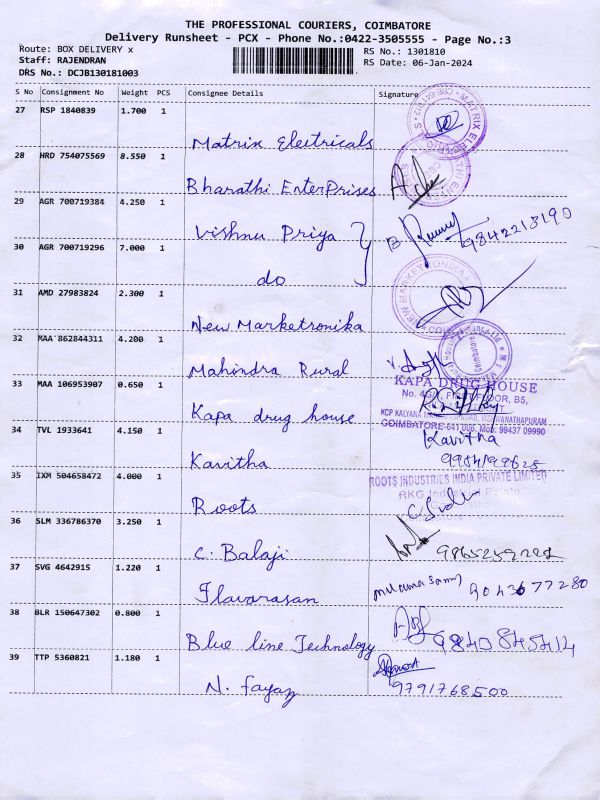 THE PROFESSIONAL COURIERS, COIMBATORE
Delivery Runsheet - PCX - Phone No.:0422-3505555 - Page No.:3
Route: BOX DELIVERY x RS No.: 1301810
Staff: RAJENDRAN RS Date: 06-Jan-2024
DRS No.: DCJB130181003
S No Consignment No Weight PCS Consignee Details Signature
27 RSP 1840839 1.700 1
Matrix Electricals
28 HRD 754075569 8.550 1
Bharathi EnterPrises
29 AGR 700719384 4.250 1
Vishnu Priya 9842213190
30 AGR 700719296 7.000 1
do
31 AMD 27983824 2.300 1
New Marketronika
32 MAA 862844311 4.200 1
Mahindra Rural
33 MAA 106953907 0.650 1
KAPA DRUG HOUSE
Kapa drug house
COIMBATORE-641 006. Mob: 99437 09990
34 TVL 1933641 4.150 1 Kavitha
Kavitha
35 IXM 504658472 4.000 1
ROOTS INDUSTRIES INDIA PRIVATE LIMITED
Roots
36 SLM 336786370 3.250 1
C. Balaji
37 SVG 4642915 1.220 1
Ilavarasan 9043677280
38 BLR 150647302 0.800 1
Blue line Technology 9840845414
39 TTP 5360821 1.180 1
N. fayaz 9791768500